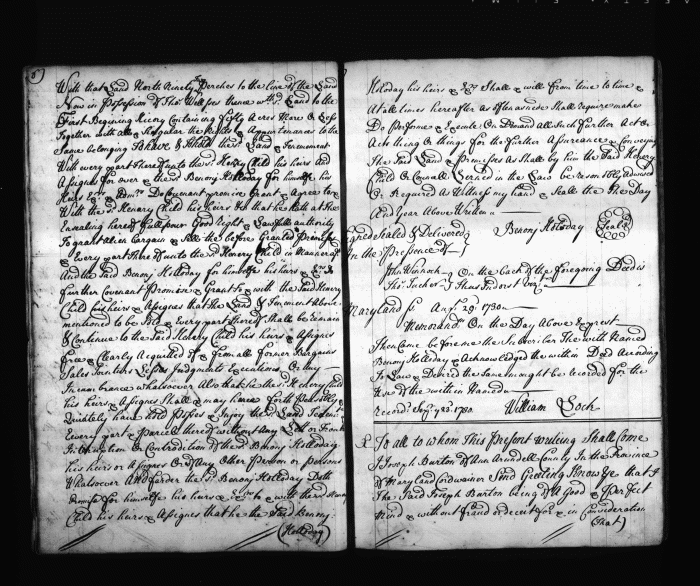 With that Land North Ninety Perches to the line of the Land
Now in Possession of Thos Wells Jos thence with sd Land to the
First Begining Hicory Containing fifty Acres More or Less
Together with all & Singular the Rents & Appurtenances to the
Same belonging To have & to Hold the sd Land & Tenement
With every part thereof unto the sd Henry Child his heirs And
Assigns for ever & the sd Benony Holloday for himself his
Heirs Exrs & Admrs Do Covenant promise Grant & Agree to &
With the sd Henery Child his heirs &c that he Hath at the
Ensealing hereof full power Good Right & Lawfull authority
To grant alien bargain & Sell the before Granted Premises
& Every part thereof unto the sd Henery Child in Manner afd
And the Said Benony Holloday for himself his heirs & Exrs &c
further Covenant Promise & Grant to & with the Said Henery
Child his heirs & Assignes that the Land & Tenement Above
mentioned to be Sold & Every part thereof Shall be remain
& Continue to the Said Henery Child his heirs & Assigns
free & Clearly Acquitted of & from all former Bargains
Sales Joincters Leases Judgments Executions Or Any
Incumbrance whatsoever Also that he the sd Henery Child
his heirs & Assigns Shall & may haveforth Peaceably &
Quiatly have hold Posses & Enjoy the sd Land Tenemt
& Every part & Parcell thereof without Any Lett or Trouble
Interuption Or Contradiction of the sd Benony Holloday
his heirs or Assigns Or of Any Other Person or Persons
Whatsoever And farder the sd Benony Holloday Doth
Promise for himselfe his heirs & Exrs to & with the sd Henery
Child his heirs & Assignes that he the Said Benony
(Holloday)
Holoday his heirs & Exrs Shall & will from time to time &
At all times hereafter as often as nede Shall require make
Do Performe & Execute On Demand all Such further Act &
Acts thing Or things for the further Assureance & Conveying
The Said Land & Premises As Shall by him the Said Henery
Child Or Counsell Lerned in the Law be resonobly Advised
Or Required As Witness my hand & Seale the The Day
And Year Above Written
Signed Sealed & Delivered
Benony Holloday
Seale
In the Presence of
John Winnock On the back of the foregoing Deed is
Maryland Sc Augt 29 1730
Memorand On the Day Above Exprest
Then Came before me the Subscriber the with Named
Benony Holliday & Acknowledged the within Deed According
to Law & Desired the Same might be recorded for the
Use of the with in Named
William Lock
To all to whom This Present writing Shall Come
I Joseph Burton of Ann Arundell County In the Province
of Maryland Cordwainer Send Greeting Know ye that I
The Said Joseph Burton being of A Good & Perfect
Mind & without fraud or deceit for & in Consideration
(That)